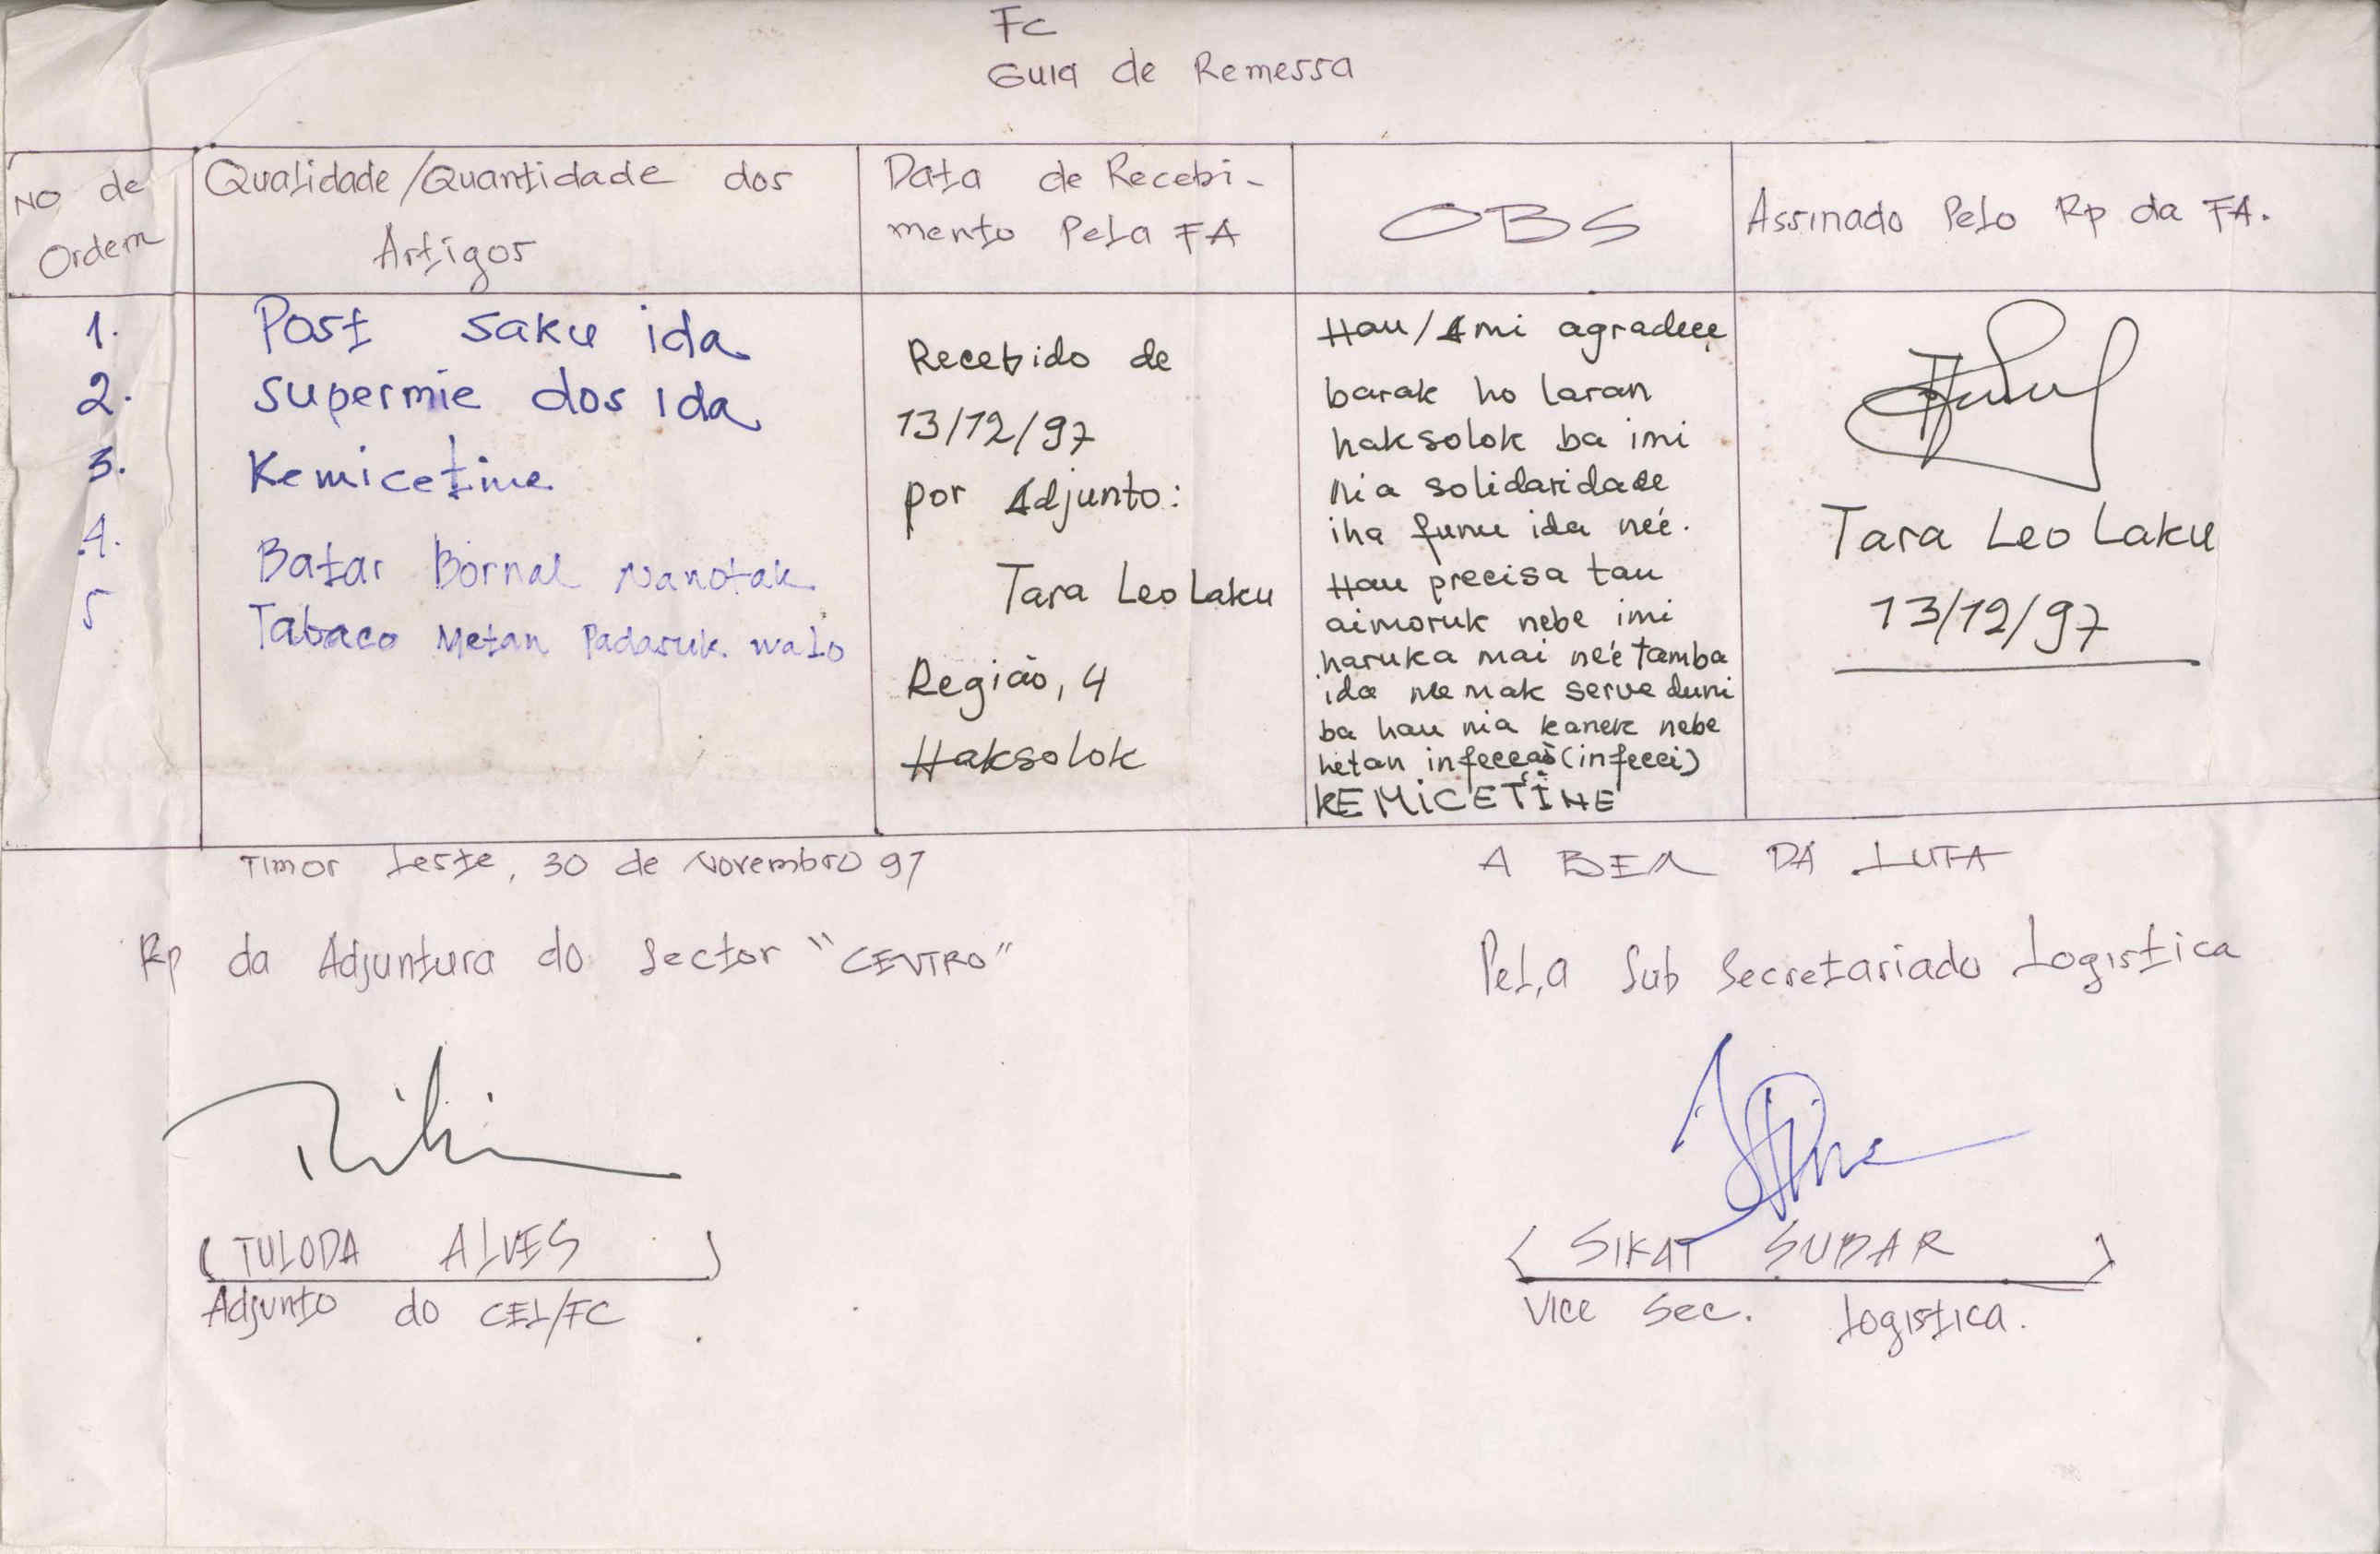 FC
Guia de Remessa
NO de Ordem
Qualidade/Quantidade dos Artigos
Data de Recebi-
mento Pela FA
OBS
Assinado Pelo Rp da FA.
1. Post saku ida
2. Supermie dos ida
3. Kemicetine
4. Batar Bornal Nanotak
5 Tabaco Metan Padasuk walo
Recebido de
13/12/97
por Adjunto:
Tara Leo Laku
Região, 4
Haksolok
Hau/Ami agradece
barak ho laran
haksolok ba imi
nia solidaridade
iha funu ida neé.
Hau precisa tau
aimoruk nebe imi
haruka mai neé tamba
ida ne mak serve duni
ba hau nia kanek nebe
hetan infeccaõ (infecci)
KEMiCETiNE
Tara Leo Laku
13/12/97
Timor Leste, 30 de Novembro 97
A BEM DA LUTA
Rp da Adjuntura do Sector "CENTRO"
Pel,a Sub Secretariado Logistica
(TULODA ALVES)
Adjunto do CEL/FC
(SIKAT SUBAR)
Vice Sec. Logistica.